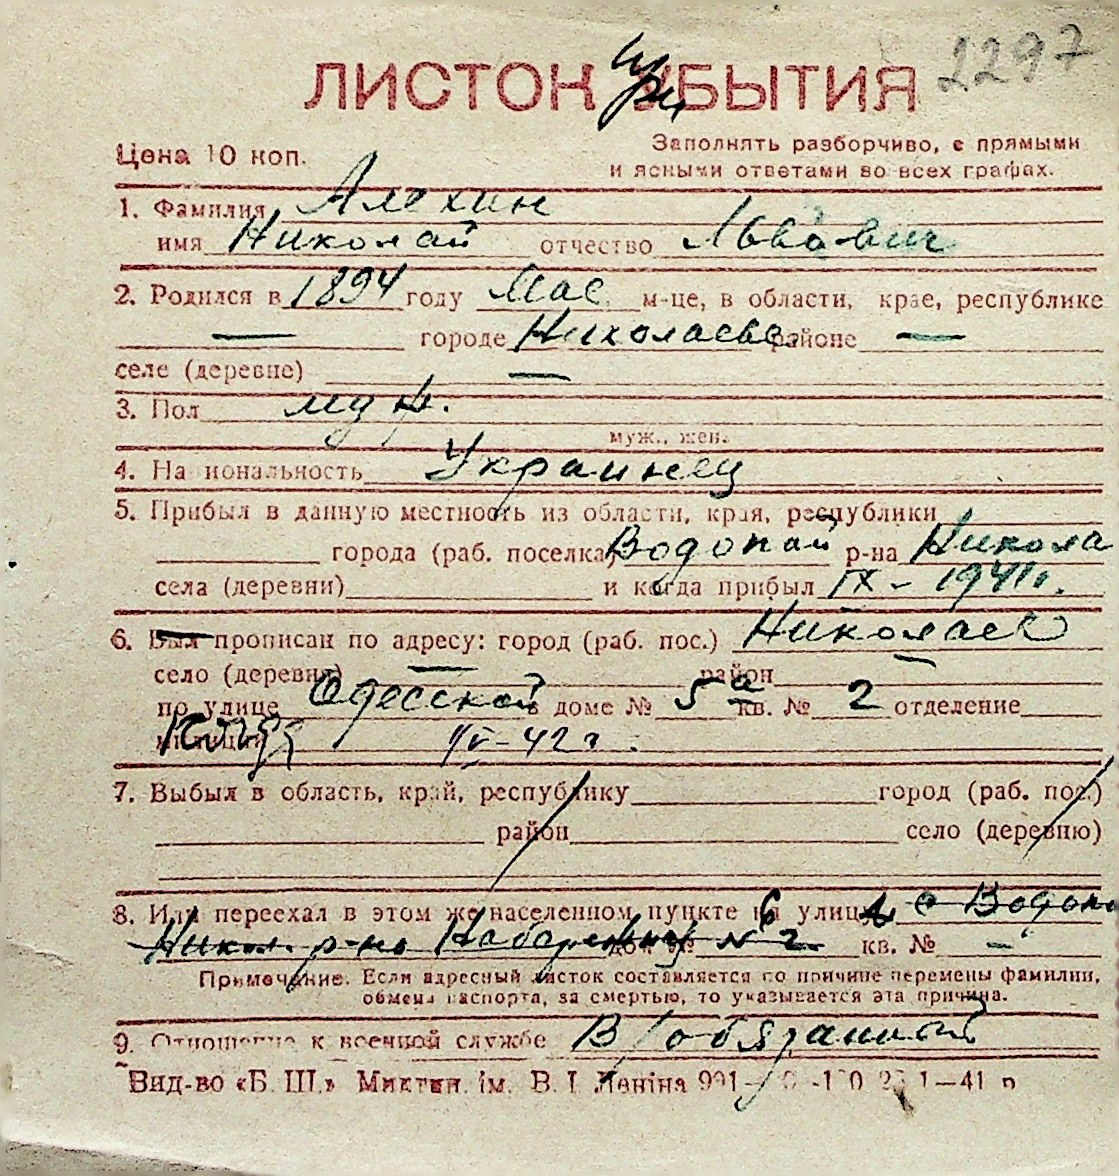 2297
ЛИСТОК при УБЫТИЯ
Цена 10 коп.
Заполнять разборчиво, с прямыми
и ясными ответами во всех графах.
1. Фамилия Алехин
имя Николай отчество Львович
2. Родился в 1894 году Мае м-це, в области, крае, республике
— городе Николаеве районе —
селе (деревне) —
3. Пол муж.
муж., жен.
4. Национальность Украинец
5. Прибыл в данную местность из области, края, республики
города (раб. поселка) Водопай р-на Никола
села (деревни) и когда прибыл IX – 1941г.
6. Был прописан по адресу: город (раб. пос.) Николаев
село (деревня) — район —
по улице Одесской в доме № 5а кв. № 2 отделение
милиции Когда IV-42 г.
7. Выбыл в область, край, республику город (раб. пос.)
район село (деревню)
8. Или переехал в этом же населенном пункте на улицу в с Водопо
Никол. р-на Набережну дом № №2 кв. № –
Примечание. Если адресный листок составляется по причине перемены фамилии,
обмена паспорта, за смертью, то указывается эта причина.
9. Отношение к военной службе В/обязанный
Вид-во «Б. Ш.» Миктип. ім. В. І. Леніна 1—41 р